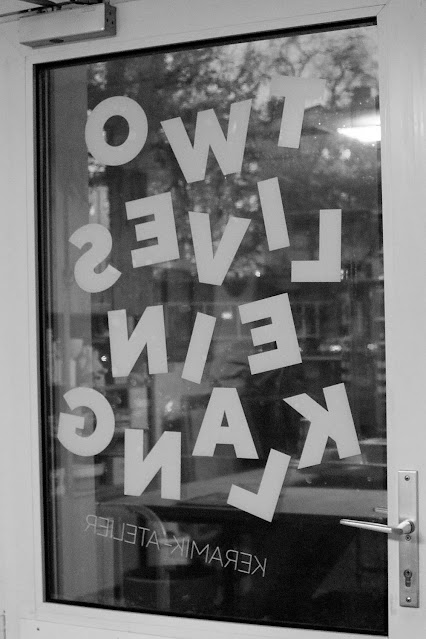 TWO
LIVES
EIN
KLANG
KERAMIK-ATELIER